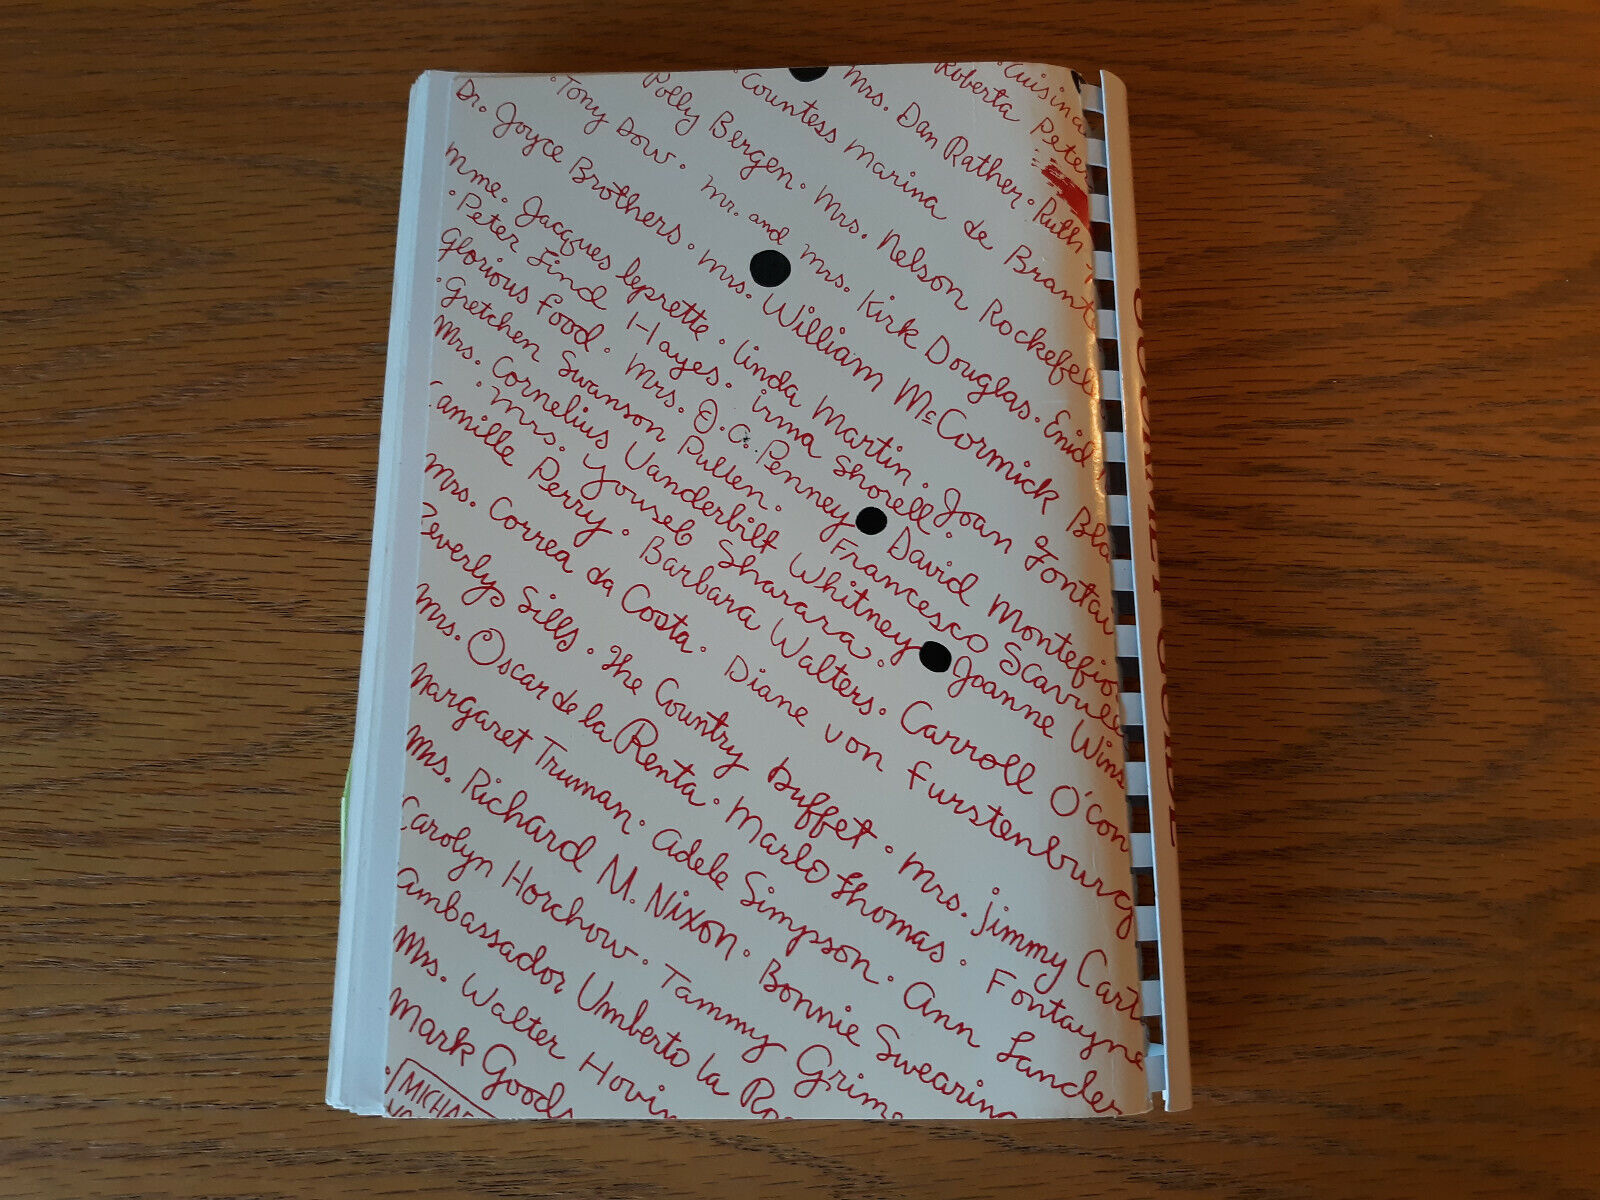 · Cuisina
Roberta Pete
Mrs. Dan Rather · Ruth
· Countess Marina de Brant
Polly Bergen · Mrs. Nelson Rockefell
· Tony Dow · Mr. and Mrs. Kirk Douglas · Enid
Dr. Joyce Brothers · Mrs. William McCormick Bla
Mme. Jacques Leprette · Linda Martin · Joan Fontai
· Peter Lind Hayes · Irma Shorell ·
Glorious Food · Mrs. J.C. Penney David Montefio
· Gretchen Swanson Pullen · Francesco Scavull
Mrs. Cornelius Vanderbilt Whitney Joanne Wins
· Mrs. Youseb Sharara ·
Camille Perry · Barbara Walters · Carroll O'Con
Mrs. Correa da Costa · Diane von Furstenburg
Beverly Sills · The Country Buffet · Mrs. Jimmy Cart
Mrs. Oscar de la Renta · Marlo Thomas · Fontayne
Margaret Truman · Adele Simpson · Ann Lander
Mrs. Richard M. Nixon · Bonnie Swearing
Carolyn Horchow · Tammy Grime
Ambassador Umberto La Ro
Mrs. Walter Hovin
Mark Goods
· MICHAE